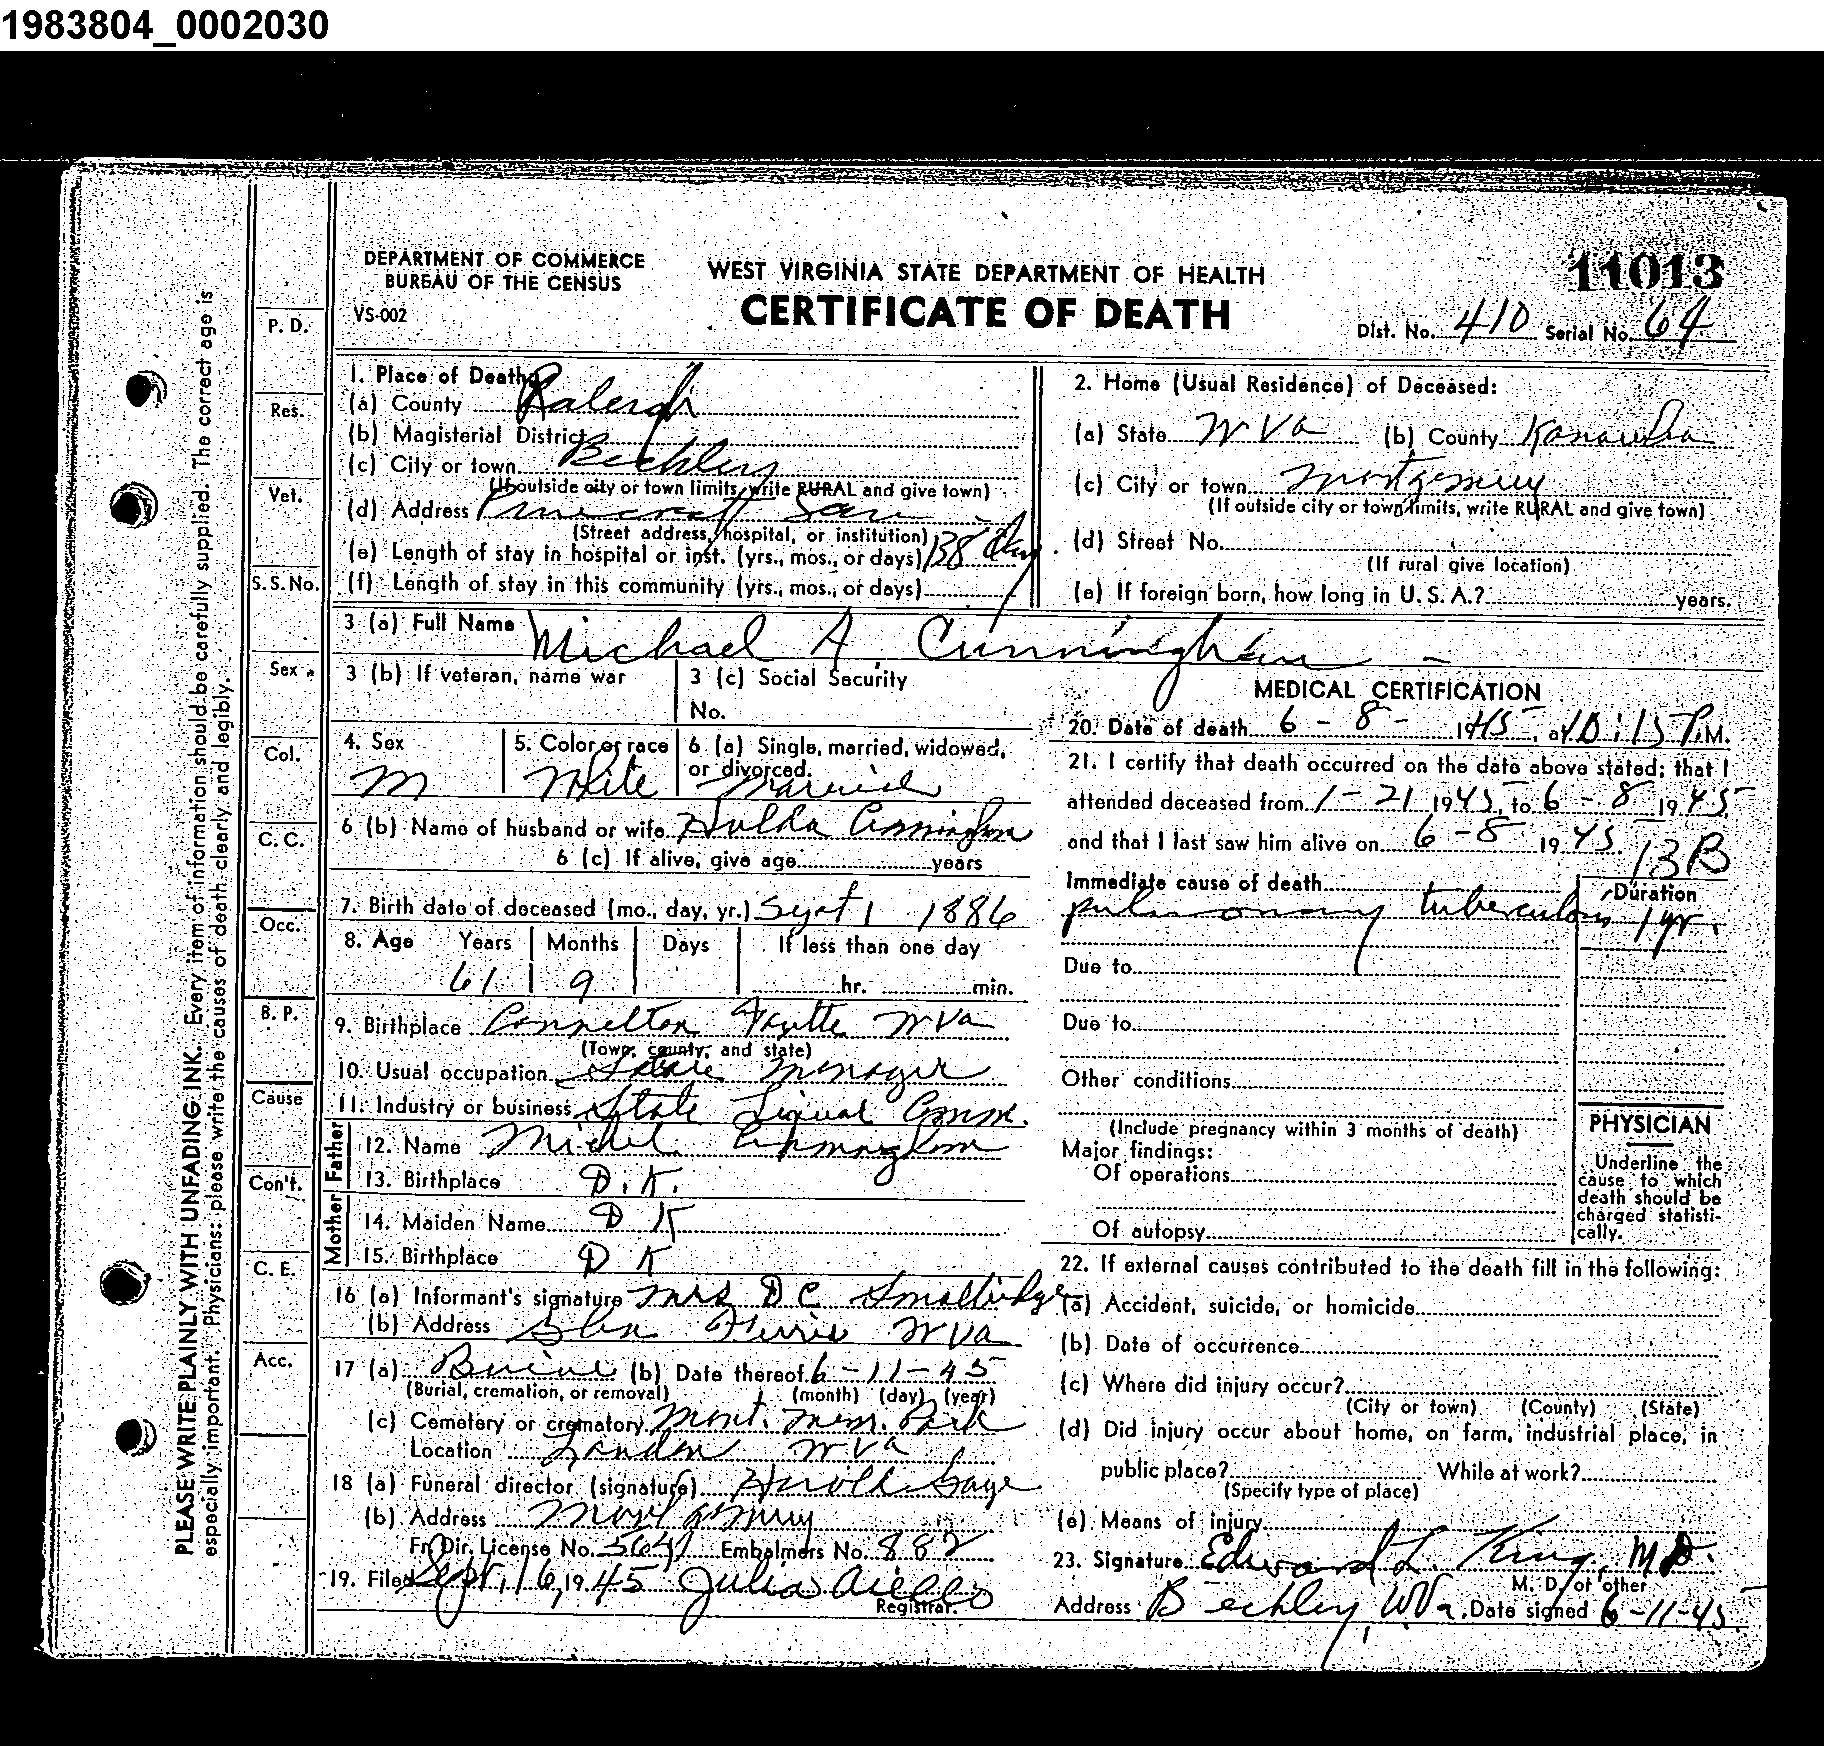 1983804_0002030
DEPARTMENT OF COMMERCE
BUREAU OF THE CENSUS
VS-002
WEST VIRGINIA STATE DEPARTMENT OF HEALTH
CERTIFICATE OF DEATH
11013
Dist. No. 410 Serial No. 64
PLEASE WRITE PLAINLY WITH UNFADING INK. Every item of information should be carefully supplied. The correct age is
especially important. Physicians: please write the causes of death clearly and legibly.
P. D.
Res.
Vet.
S. S. No.
Sex
Col.
C. C.
Occ.
B. P.
Cause
Con't.
C. E.
Acc.
1. Place of Death
(a) County Raleigh
(b) Magisterial District
(c) City or town Beckley
(If outside city or town limits, write RURAL and give town)
(d) Address Pinecrest San
(Street address, hospital, or institution)
(e) Length of stay in hospital or inst. (yrs., mos., or days) 138 days
(f) Length of stay in this community (yrs., mos., or days)
2. Home (Usual Residence) of Deceased:
(a) State W Va (b) County Kanawha
(c) City or town Montgomery
(If outside city or town limits, write RURAL and give town)
(d) Street No.
(If rural give location)
(e) If foreign born, how long in U. S. A.? years.
3 (a) Full Name Michael A. Cunningham
3 (b) If veteran, name war
3 (c) Social Security
No.
4. Sex M
5. Color or race White
6 (a) Single, married, widowed,
or divorced. Married
6 (b) Name of husband or wife Hulda Cunningham
6 (c) If alive, give age years
7. Birth date of deceased (mo., day, yr.) Sept 1 1886
8. Age Years Months Days If less than one day
61 9 hr. min.
9. Birthplace Cannelton Fayette W Va
(Town, county, and state)
10. Usual occupation Store Manager
11. Industry or business State Liquor Comm.
Father
12. Name Michel Cunningham
13. Birthplace D. K.
Mother
14. Maiden Name D K
15. Birthplace D K
16 (a) Informant's signature Mrs D C Smallridge
(b) Address Glen Ferris W Va
17 (a) Burial (b) Date thereof 6-11-45
(Burial, cremation, or removal) (month) (day) (year)
(c) Cemetery or crematory Mont. Mem. Park
Location London W Va
18 (a) Funeral director (signature) Harold Gage
(b) Address Montgomery
Fr. Dir. License No. Embalmers No. 882
19. Filed Sept. 16, 1945 Julia Aiello
Registrar.
MEDICAL CERTIFICATION
20. Date of death 6-8- 1945, at 10:15 P.M.
21. I certify that death occurred on the date above stated; that I
attended deceased from 1-21 1945, to 6-8 1945
and that I last saw him alive on 6-8 1945
13B
Immediate cause of death Duration
pulmonary tuberculosis 1 yr.
Due to
Due to
Other conditions
(Include pregnancy within 3 months of death)
Major findings:
Of operations
Of autopsy
PHYSICIAN
Underline the
cause to which
death should be
charged statisti-
cally.
22. If external causes contributed to the death fill in the following:
(a) Accident, suicide, or homicide
(b) Date of occurrence
(c) Where did injury occur?
(City or town) (County) (State)
(d) Did injury occur about home, on farm, industrial place, in
public place? While at work?
(Specify type of place)
(e) Means of injury
23. Signature Edward L. King, M.D.
M. D. or other
Address Beckley, W Va. Date signed 6-11-45